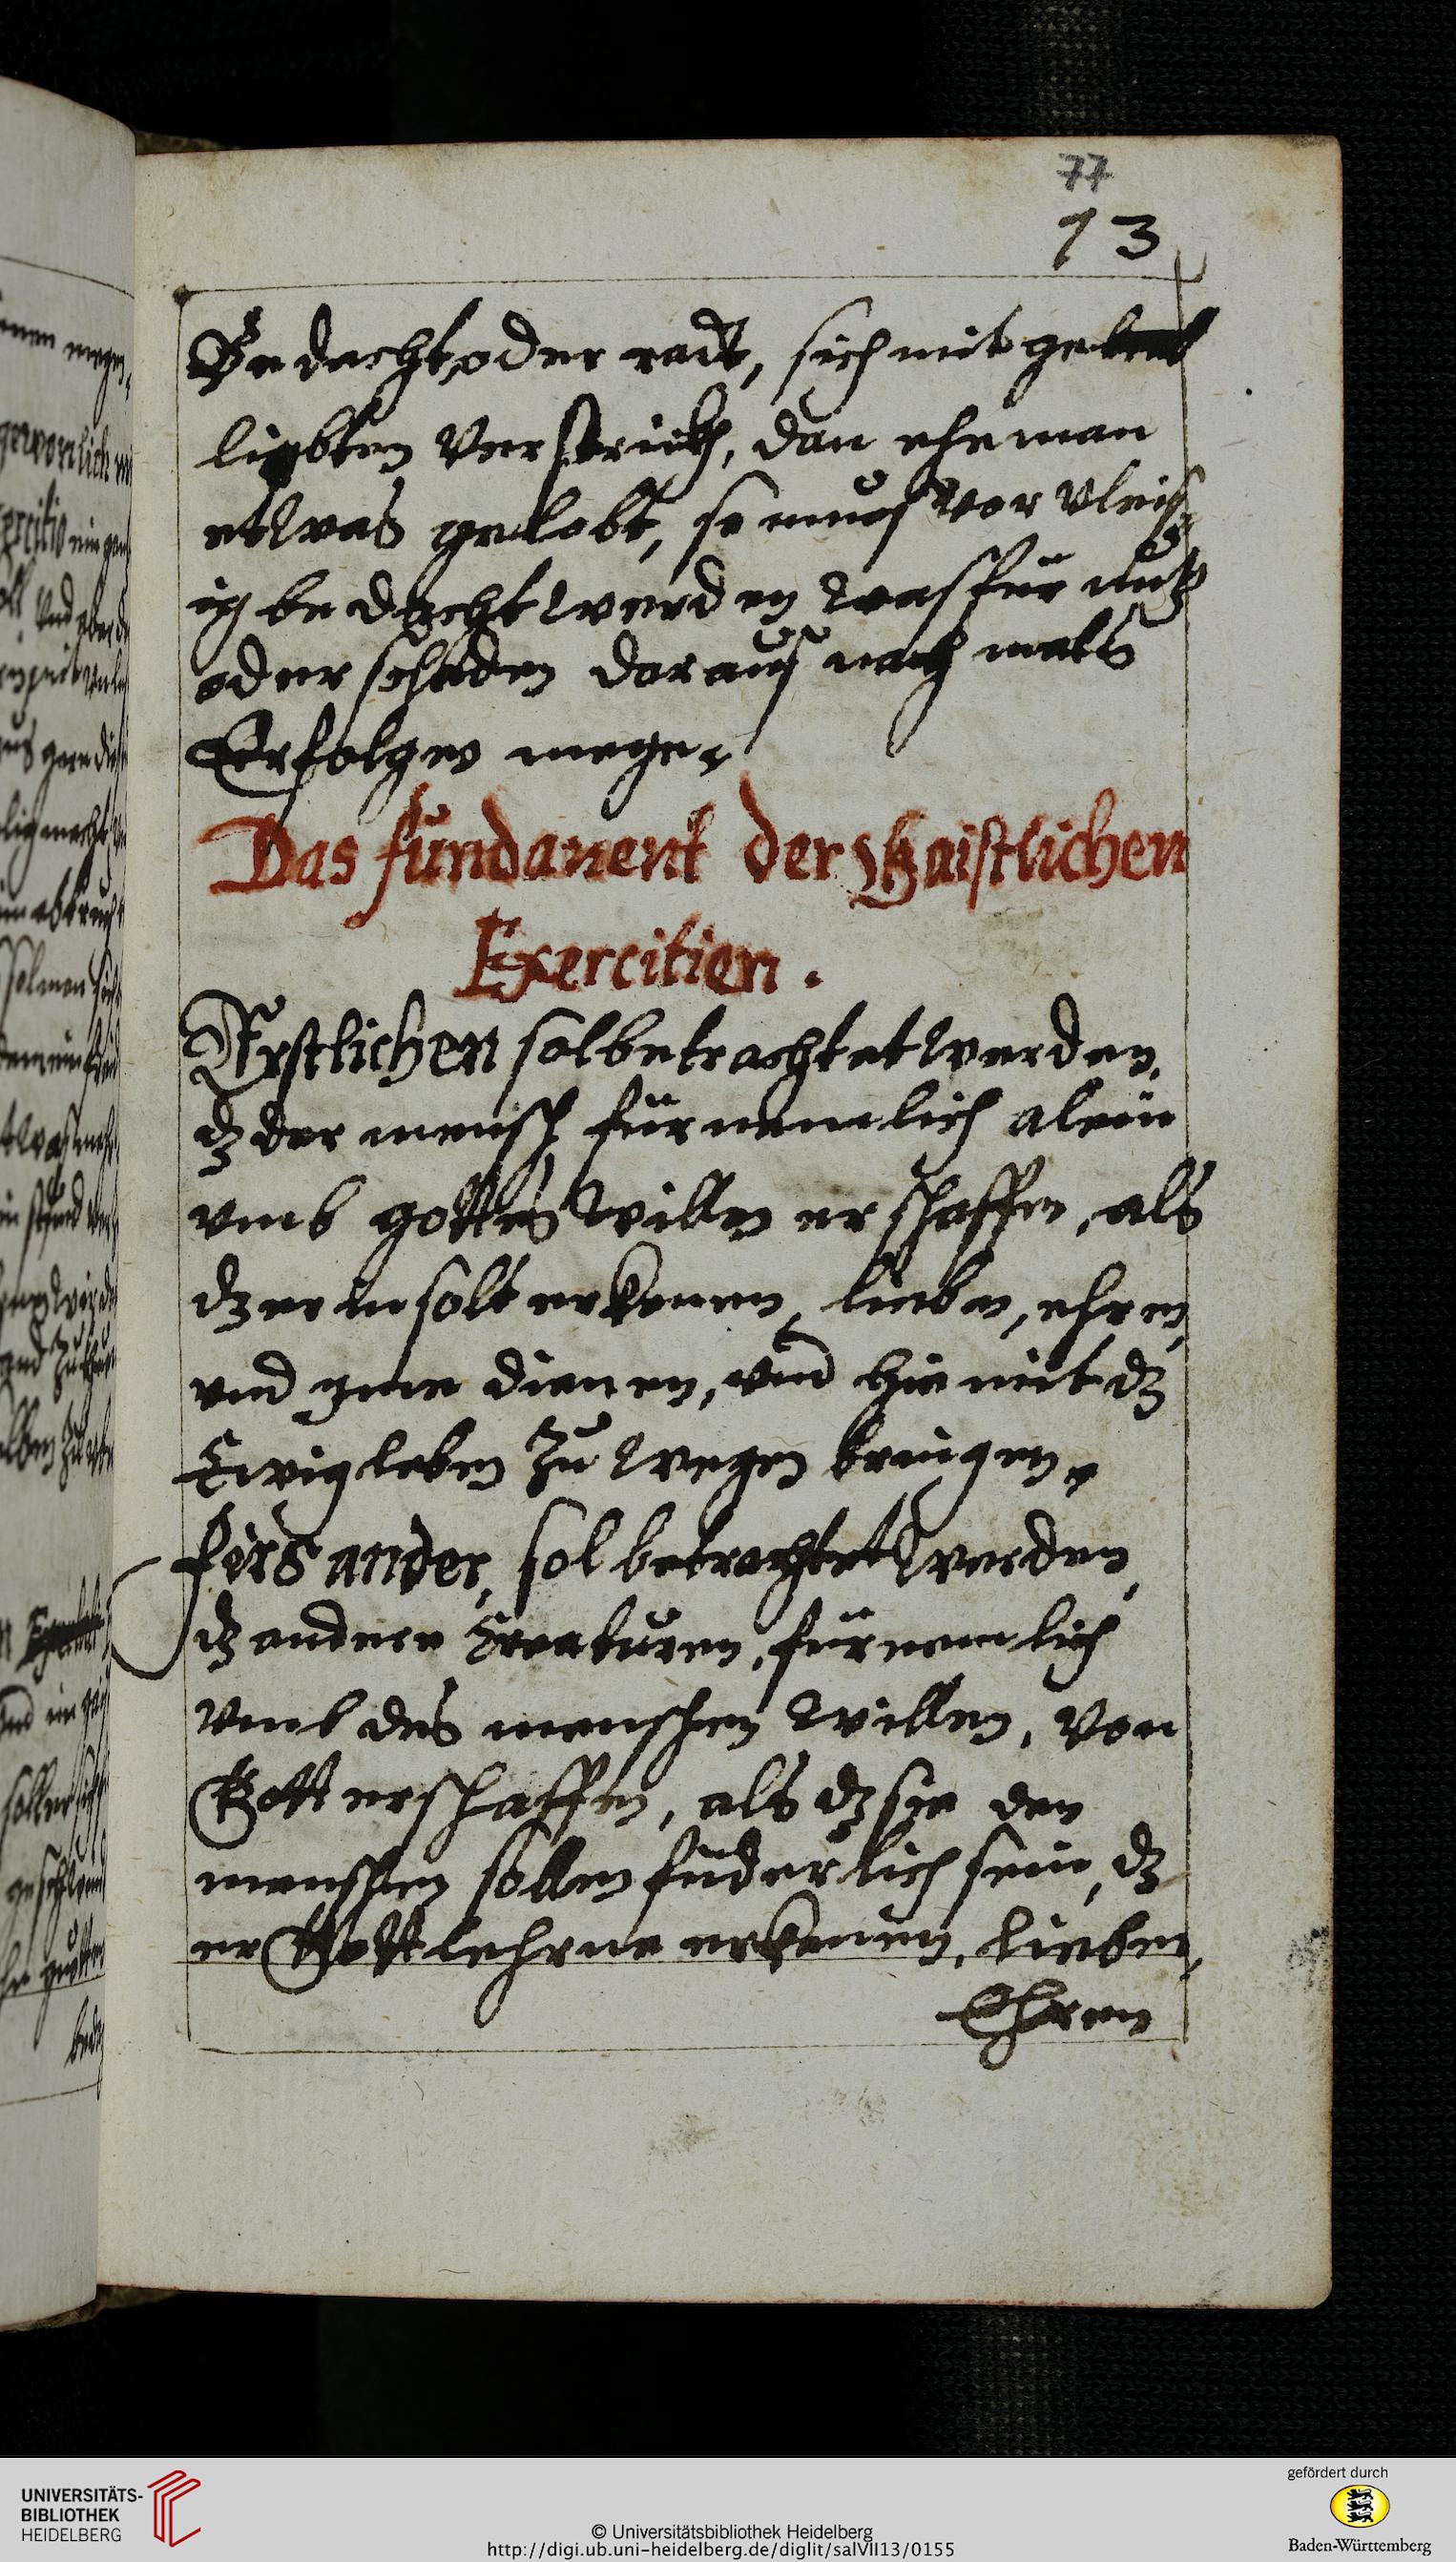 77
13
Bedacht, oder radt, sich mit gelent
ligkten Verstrickh, dan eheman
etwas gelobt, so mues vor vleis
ig bedacht werden was für nutz
oder schaden daraus nach mals
Erfolgen mege.
Das fundament der Gaistlichen
Exercitien.
Erstlichen sol betrachtet werden,
dz der mensch fürnemlich alein
vmb gottes willen erschaffen, als
dz er in solt erkenen, lieben, ehren,
vnd yme dienen, vnd hie mit dz
Ewig leben zu wegen bringen.
fürs ander, sol betrachtet werden,
dz andere Creaturen, fürnemlich
vmb des menschen willen, von
Gott erschaffen, als dz sie den
menschen sollen füderlich sein, dz
er Gott lehrne erkenen, lieben,
Ehren
UNIVERSITÄTS-
BIBLIOTHEK
HEIDELBERG
© Universitätsbibliothek Heidelberg
http://digi.ub.uni-heidelberg.de/diglit/salVII13/0155
gefördert durch
Baden-Württemberg